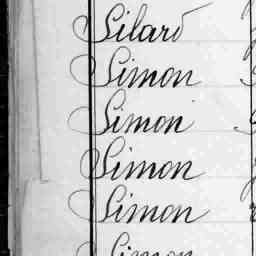 Silard
Simon
Simon
Simon
Simon
Simon